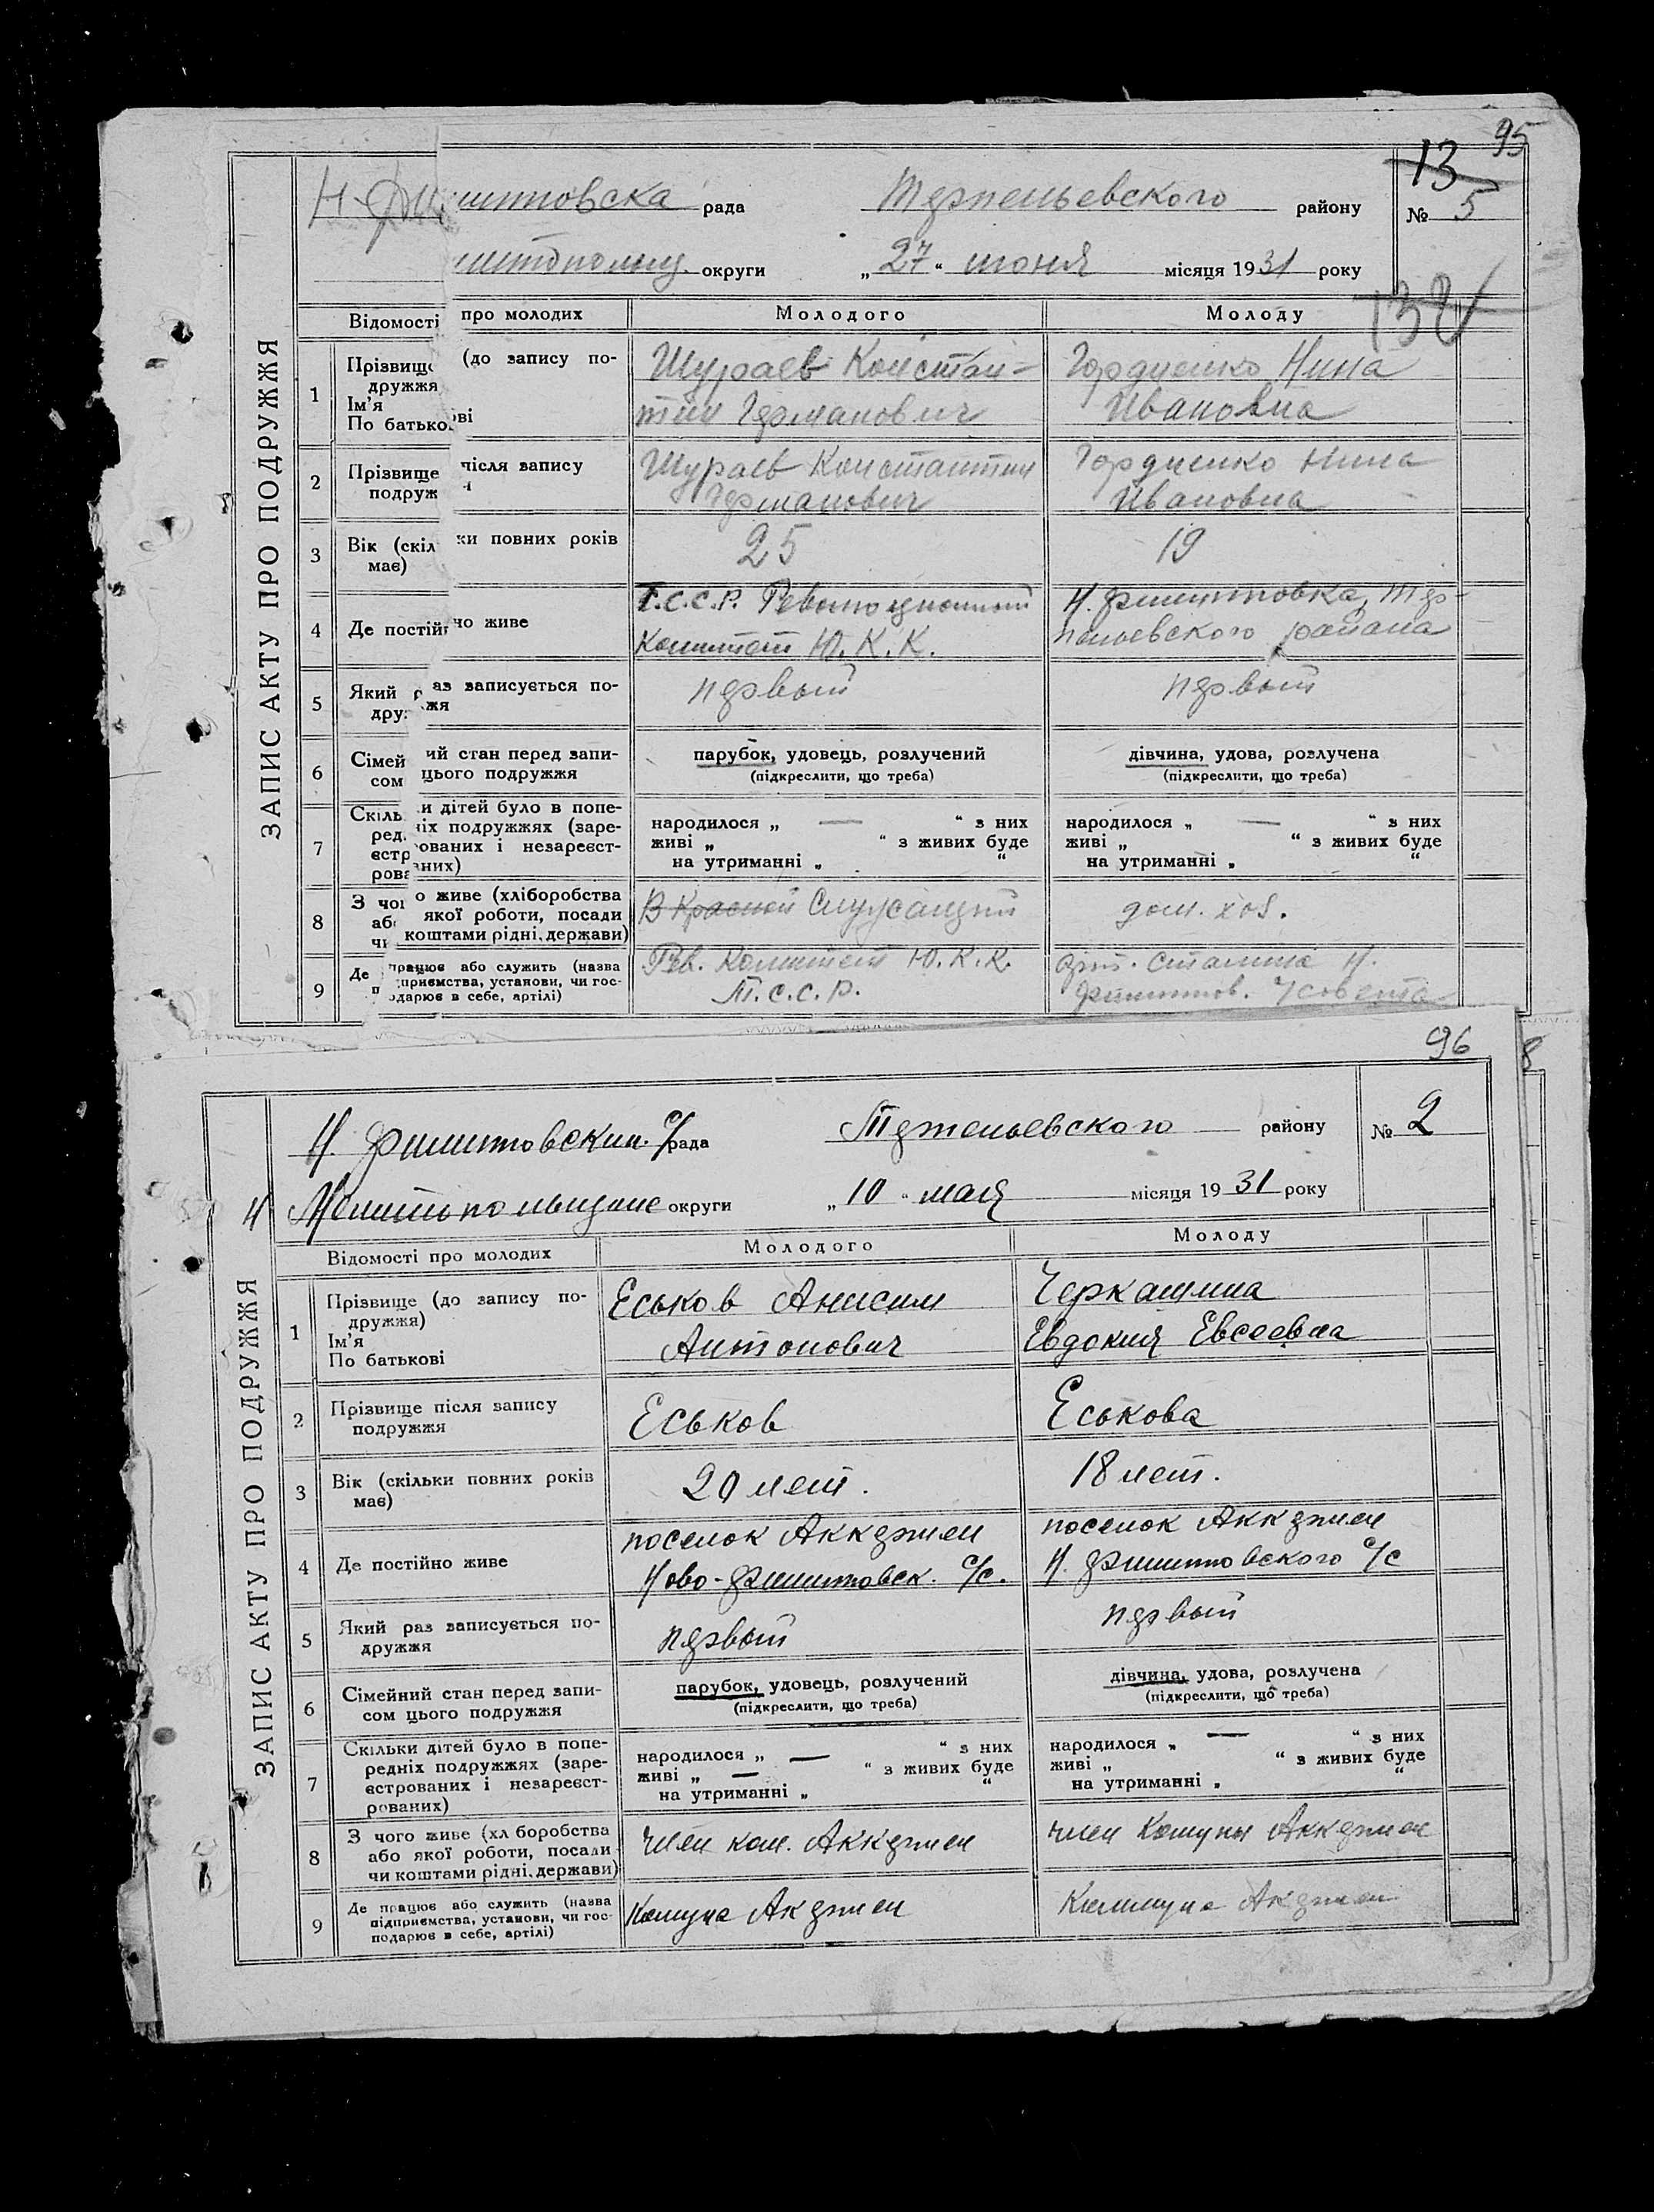 95
13
ЗАПИС АКТУ ПРО ПОДРУЖЖЯ
рада Терпеньевского району № 5
округи „27“ июня місяця 1931 року
132
Відомості про молодих Молодого Молоду
1 Прізвище (до запису по-
дружжя
Ім'я
По батькові
Шураев Констан-
тин Германович
Гордиенко Нина
Ивановна
2 Прізвище після запису
подруж
Шураев Константин
Германович
Гордиенко Нина
Ивановна
3 Вік (скільки повних років
має)
25
19
4 Де постійно живе
Т.С.С.Р. Революционный
Комитет Ю.К.К.
Н. Филипповка, Тер-
пеньевского района
5 Який раз записується по-
дружжя
первый
первый
6 Сімейний стан перед запи-
сом цього подружжя
парубок, удовець, розлучений
(підкреслити, що треба)
дівчина, удова, розлучена
(підкреслити, що треба)
7 Скільки дітей було в попе-
редніх подружжях (заре-
єстрованих і незареєст-
рованих)
народилося „ — “ з них
живі „ “ з живих буде
на утриманні „ “
народилося „ — “ з них
живі „ “ з живих буде
на утриманні „ “
8 З чого живе (хліборобства
або якої роботи, посади
чи коштами рідні, держави)
В Красной Служащий
дом. хоз.
9 Де працює або служить (назва
підприємства, установи, чи гос-
подарює в себе, артілі)
Рев. Комитет Ю.К.К.
Т.С.С.Р.
арт. Сталина Н.
Филиппов.
96
8
ЗАПИС АКТУ ПРО ПОДРУЖЖЯ
Н. Филипповский с/рада Терпеньевского району № 2
Мелитопольщине округи „10“ мая місяця 1931 року
Відомості про молодих Молодого Молоду
1 Прізвище (до запису по-
дружжя)
Ім'я
По батькові
Еськов Анисим
Антонович
Черкашина
Евдокия Евсеевна
2 Прізвище після запису
подружжя
Еськов
Еськова
3 Вік (скільки повних років
має)
20 лет.
18 лет.
4 Де постійно живе
поселок Аккермен
Ново-Филипповск. с/с.
поселок Аккермен
Н. Филипповского с/с
5 Який раз записується по-
дружжя
первый
первый
6 Сімейний стан перед запи-
сом цього подружжя
парубок, удовець, розлучений
(підкреслити, що треба)
дівчина, удова, розлучена
(підкреслити, що треба)
7 Скільки дітей було в попе-
редніх подружжях (заре-
єстрованих і незареєст-
рованих)
народилося „ — “ з них
живі „ — “ з живих буде
на утриманні „ “
народилося „ — “ з них
живі „ “ з живих буде
на утриманні „ “
8 З чого живе (хліборобства
або якої роботи, посади
чи коштами рідні, держави)
член ком. Аккермен
член Комуны Аккермен
9 Де працює або служить (назва
підприємства, установи, чи гос-
подарює в себе, артілі)
Комуна Акермен
Коммуна Акермен